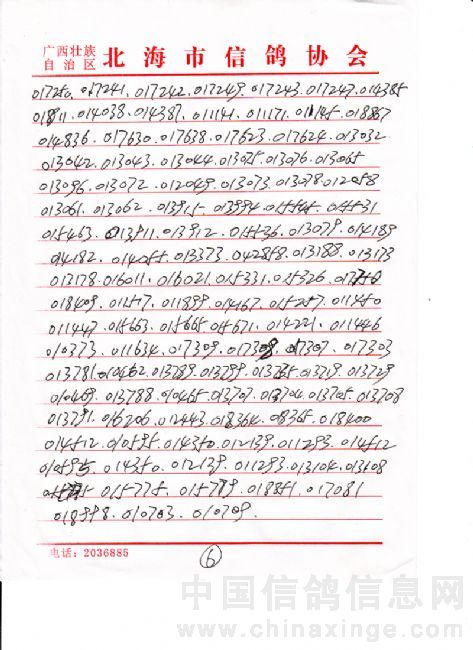 广西壮族
自治区 北海市信鸽协会
017250. 017241. 017242. 017249. 017243. 017247. 014385
01811. 014038. 014387. 011141. 011171. 011145. 018887
014836. 017630. 017638. 017623. 017624. 013032
013042. 013043. 013044. 013075. 013076. 013065
013096. 013072. 012049. 013073. 013078. 012058
013061. 013062. 013915. 013994. 015545. 015531
015463. 013911. 013912. 015536. 013079. 014189
014182. 014055. 013373. 042858. 013188. 013173
013178. 016011. 016021. 015331. 015326.
018409. 011517. 011899. 014167. 015257. 011450
011447. 015663. 015665. 015671. 014221. 011446
010373. 011634. 017309. 017308. 017307. 017303
013781. 010462. 013789. 013799. 013785. 013719. 013729
010469. 013788. 010465. 013707. 013704. 013705. 013708
013791. 016206. 012443. 018364. 08365. 018400
014512. 010595. 014350. 012139. 011293. 014512
010595. 014350. 012139. 011293. 013104. 013108
015775. 015789. 018851. 017081
018998. 010703. 010709.
电话：2036885
6
中国信鸽信息网
www.chinaxinge.com